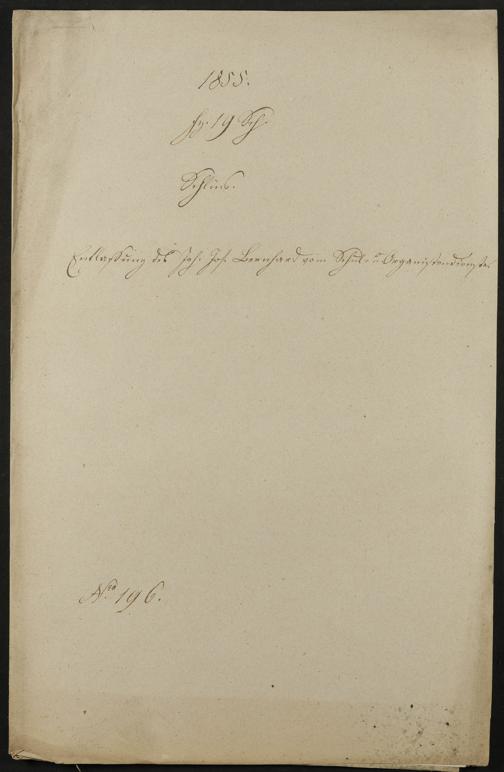 1855.
fz. 19 Sch.
Schluis.
Entlassung des Joh. Jos. Bernhard vom Schul- u. Organistendienste.
Nro 196.